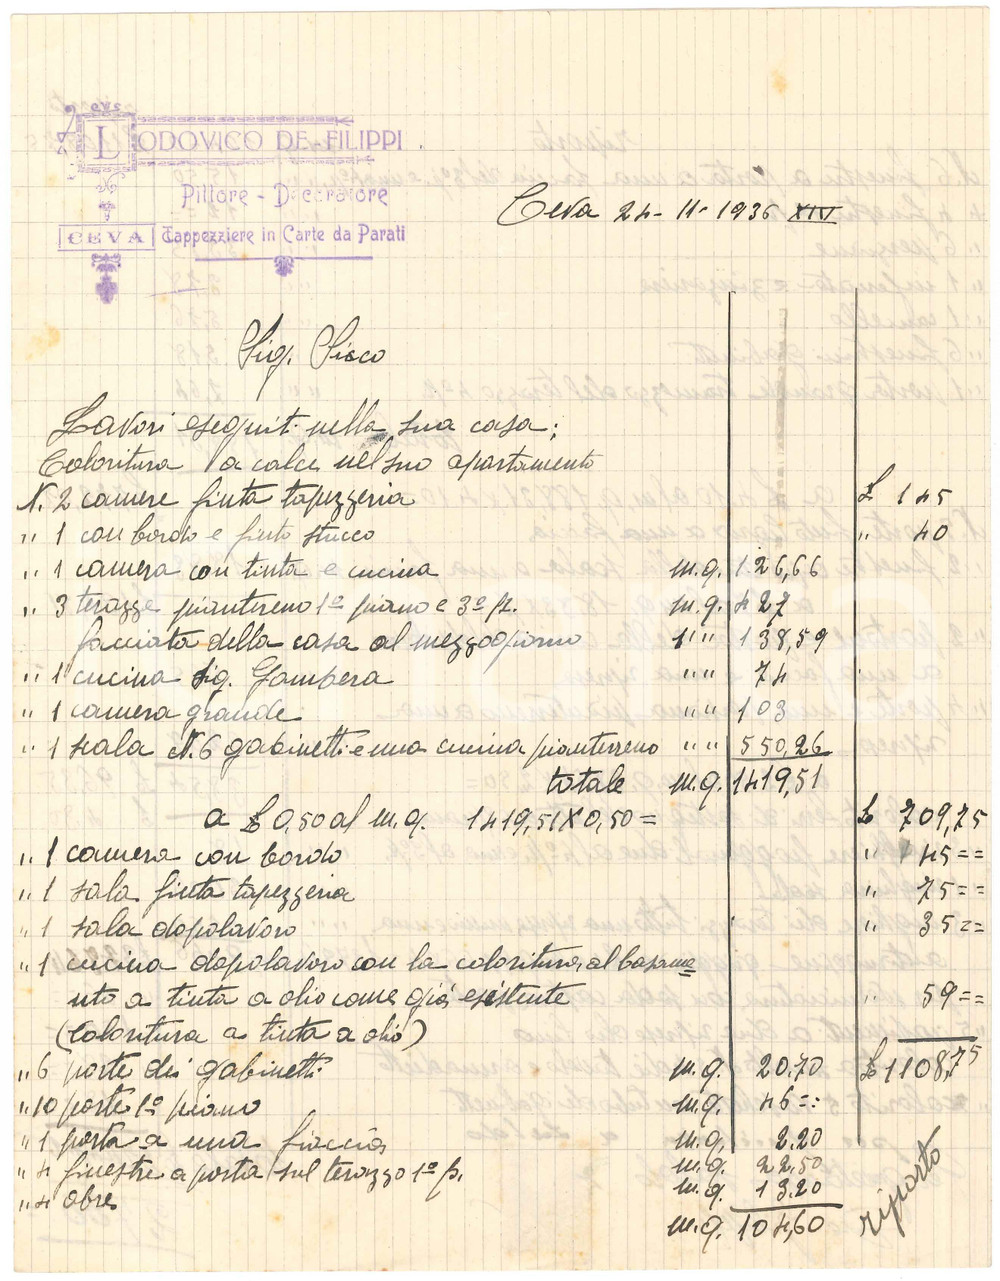 LODOVICO DE-FILIPPI
Pittore - Decoratore
CEVA Tappezziere in Carte da Parati
Ceva 24-11-1936 XIV
Sig. Sisco
Lavori eseguiti nella sua casa;
Coloritura a calce nel suo apartamento
N. 2 camere finta tapezzeria £ 145
" 1 con bordo e finto stucco " 40
" 1 camera con tinta e cucina m.q. 126,66
" 3 terazze pianterreno 1º piano e 3º p. m.q. 427
facciata della casa al mezzogiorno " " 138,59
" 1 cucina Sig. Gambera " " 74
" 1 camera grande " " 103
" 1 scala N. 6 gabinetti e una cucina pianterreno " " 550,26
totale m.q. 1419,51
a £ 0,50 al m.q. 1419,51 X 0,50 = £ 709,75
" 1 camera con bordo " 45==
" 1 sala finta tapezzeria " 75==
" 1 sala dopolavoro " 35==
" 1 cucina dopolavoro con la coloritura al basame
nto a tinta a olio come già esistente " 59==
(Coloritura a tinta a olio)
" 6 porte dei gabinetti m.q. 20.70 £ 1108,75
" 10 porte 1º piano m.q. 46==
" 1 porta a una faccia m.q. 2.20
" 4 finestre a porta sul terazzo 1º p. m.q. 22.50
" 4 obre m.q. 13.20
m.q. 104,60
riporto